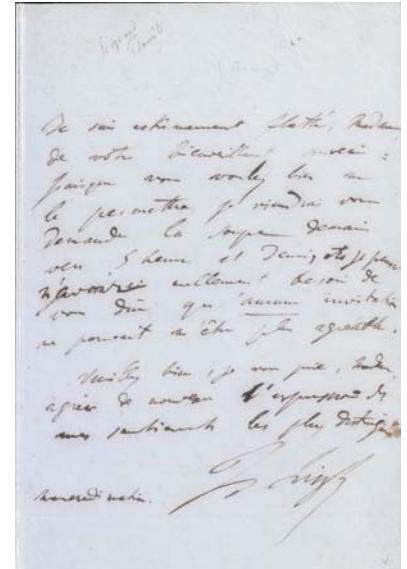 Je suis extrêmement flatté, Madame
de votre bienveillant
puisque vous voulez bien me
le permettre je viendrai vous
demander la soupe demain
vers 5 heures et demie, et je pense
n'avoir nullement besoin de
vous dire qu'aucune invitation
ne pouvait m'être plus agréable.
Veuillez bien, je vous prie, Madame,
agréer de nouveau l'expression de
mes sentiments les plus distingués
Mercredi matin.